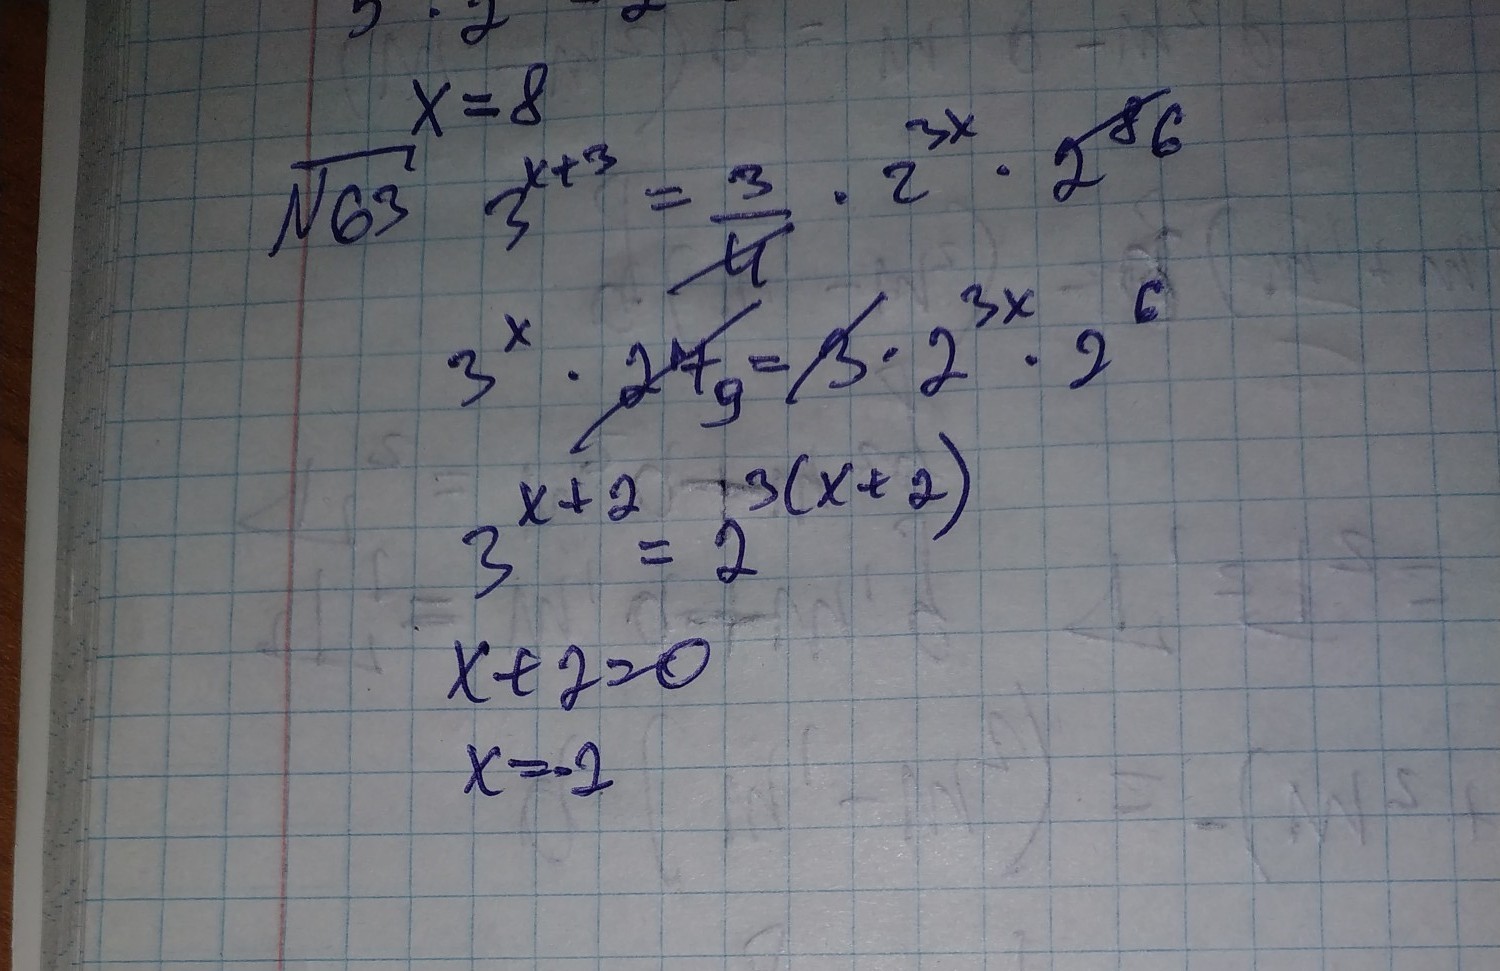 x = 8
N63 3^{x+3} = \frac{3}{4} · 2^{3x} · 2^{8} 6
3^{x} · 27 9 = 3 · 2^{3x} · 2^{6}
3^{x+2} = 2^{3(x+2)}
x+2=0
x=-2